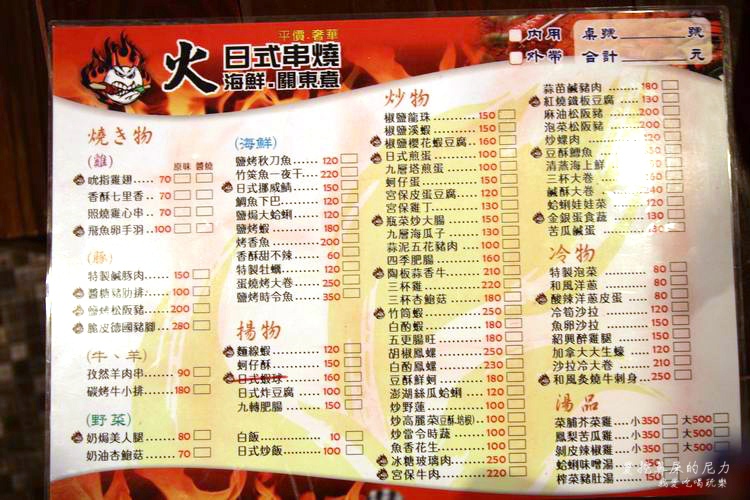 平價.奢華
火 日式串燒
海鮮.關東煮
內用 桌號 號
外帶 合計 元
燒き物
(雞) 原味 醬燒
吮指雞翅 70
香酥七里香 70
照燒雞心串 70
飛魚卵手羽 100
(豚)
特製鹹豚肉 150
醬糖豬肋排 100
鹽烤松阪豬 200
脆皮德國豬腳 280
(牛、羊)
孜然羊肉串 90
碳烤牛小排 180
(野菜)
奶焗美人腿 80
奶油杏鮑菇 70
(海鮮)
鹽烤秋刀魚 120
竹筴魚一夜干 220
日式挪威鯖 150
鯛魚下巴 120
鹽焗大蛤蜊 120
鹽烤蝦 180
烤香魚 200
香酥甜不辣 60
特製牡蠣 120
蛋燒烤大卷 250
鹽烤時令魚 350
揚物
麵線蝦 120
蚵仔酥 150
日式蝦球 160
日式炸豆腐 100
九轉肥腸 150
白飯 10
日式炒飯 100
炒物
椒鹽龍珠 150
椒鹽溪蝦 150
椒鹽櫻花蝦豆腐 160
日式煎蛋 100
九層塔煎蛋 100
蚵仔蛋 100
宮保皮蛋豆腐 120
宮保雞丁 130
瓶菜炒大腸 150
九層海瓜子 130
蒜泥五花豬肉 100
四季肥腸 160
陶板蒜香牛 210
三杯雞 220
三杯杏鮑菇 150
竹筒蝦 250
白酌蝦 200
五更腸旺 180
胡椒鳳螺 250
白酌鳳螺 230
豆酥鮮蚵 180
澎湖絲瓜蛤蜊 120
炒野蓮 100
炒高麗菜(豆酥.培根) 100
炒當令時蔬 100
魚香花生 100
冰糖玻璃肉 250
宮保牛肉 220
蒜苗鹹豬肉 180
紅燒鐵板豆腐 130
麻油松阪豬 200
泡菜松阪豬 200
炒螺肉 130
豆酥鱈魚 130
清蒸海上鮮
三杯大卷
鹹酥大卷
蛤蜊娃娃菜 150
金銀蛋食蔬 130
苦瓜鹹蛋 130
冷物
特製泡菜 80
和風洋蔥 80
酸辣洋蔥皮蛋 80
冷筍沙拉 100
魚卵沙拉 100
紹興醉雞腿 130
加拿大大生蠔 120
沙拉冷大卷 210
和風炙燒牛刺身 250
湯品
菜脯芥菜雞 小350 大500
鳳梨苦瓜雞 小350 大500
剝皮辣椒雞 小350 大500
蛤蜊味噌湯
榨菜豬肚湯 150
我愛吃喝玩樂